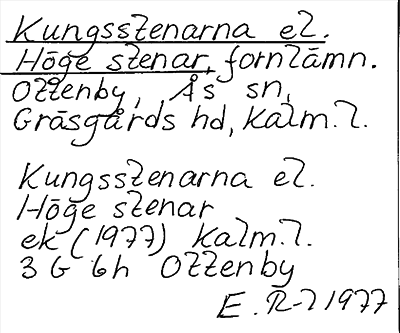 Kungsstenarna el.
Höge stenar, fornlämn.
Ottenby, Ås sn,
Gräsgårds hd, Kalm. l.
Kungsstenarna el.
Höge stenar
ek (1977) Kalm. l.
3 G 6h Ottenby
E. R-l 1977